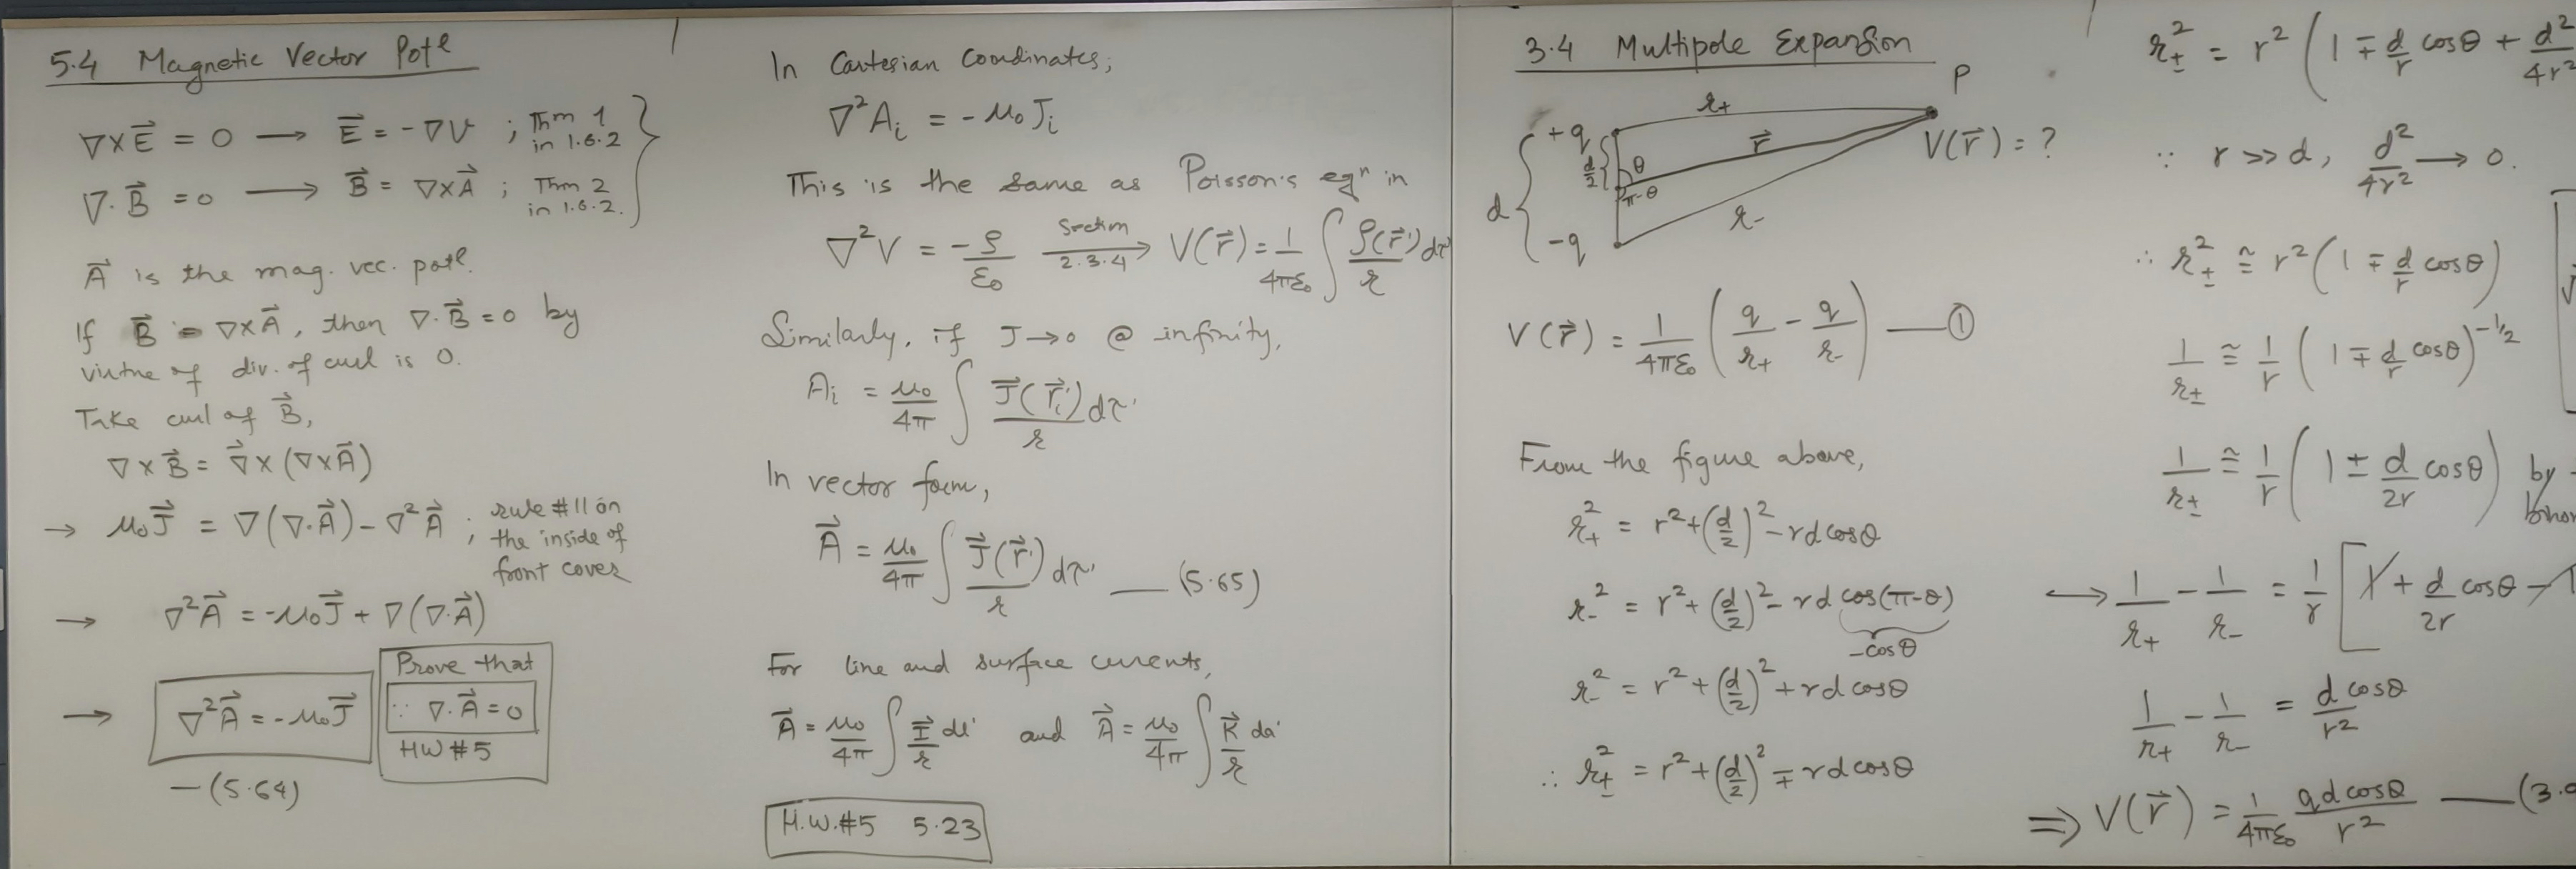 5.4 Magnetic Vector Potl
∇×E⃗ = 0 ⟶ E⃗ = -∇V ; Thm 1 in 1.6.2
∇·B⃗ = 0 ⟶ B⃗ = ∇×A⃗ ; Thm 2 in 1.6.2.
A⃗ is the mag. vec. potl.
If B⃗ = ∇×A⃗, then ∇·B⃗ = 0 by
virtue of div. of curl is 0.
Take curl of B⃗,
∇×B⃗ = ∇⃗×(∇×A⃗)
→ μ₀J⃗ = ∇(∇·A⃗) - ∇²A⃗ ; rule #11 on
the inside of
front cover
→ ∇²A⃗ = -μ₀J⃗ + ∇(∇·A⃗)
→ ∇²A⃗ = -μ₀J⃗
— (5.64)
Prove that
∵ ∇·A⃗ = 0
HW #5
In Cartesian Coordinates,
∇²Aᵢ = -μ₀Jᵢ
This is the same as Poisson's eqⁿ in
∇²V = -ρ/ε₀ ⟶ Section 2.3.4 V(r⃗) = 1/4πε₀ ∫ ρ(r⃗')dτ'/r
Similarly, if J→0 @ infinity,
Aᵢ = μ₀/4π ∫ J⃗(r⃗ᵢ')/r dτ'
In vector form,
A⃗ = μ₀/4π ∫ J⃗(r⃗')/r dτ' — (5.65)
For line and surface currents,
A⃗ = μ₀/4π ∫ I⃗/r dl' and A⃗ = μ₀/4π ∫ K⃗/r da'
H.W.#5 5.23
3.4 Multipole Expansion
P
r₊
+q
d/2
θ
r⃗
V(r⃗) = ?
π-θ
d
r₋
-q
V(r⃗) = 1/4πε₀ (q/r₊ - q/r₋) — ①
From the figure above,
r₊² = r² + (d/2)² - rd cosθ
r₋² = r² + (d/2)² - rd cos(π-θ)
-cosθ
r₋² = r² + (d/2)² + rd cosθ
∴ r±² = r² + (d/2)² ∓ rd cosθ
r±² = r² (1 ∓ d/r cosθ + d²/4r²
∵ r >> d, d²/4r² ⟶ 0.
∴ r±² ≅ r² (1 ∓ d/r cosθ)
1/r± ≅ 1/r (1 ∓ d/r cosθ)^-1/2
1/r± ≅ 1/r (1 ± d/2r cosθ) by
⟶ 1/r₊ - 1/r₋ = 1/r [1 + d/2r cosθ - 1
1/r₊ - 1/r₋ = d cosθ/r²
⟹ V(r⃗) = 1/4πε₀ qd cosθ/r² — (3.9